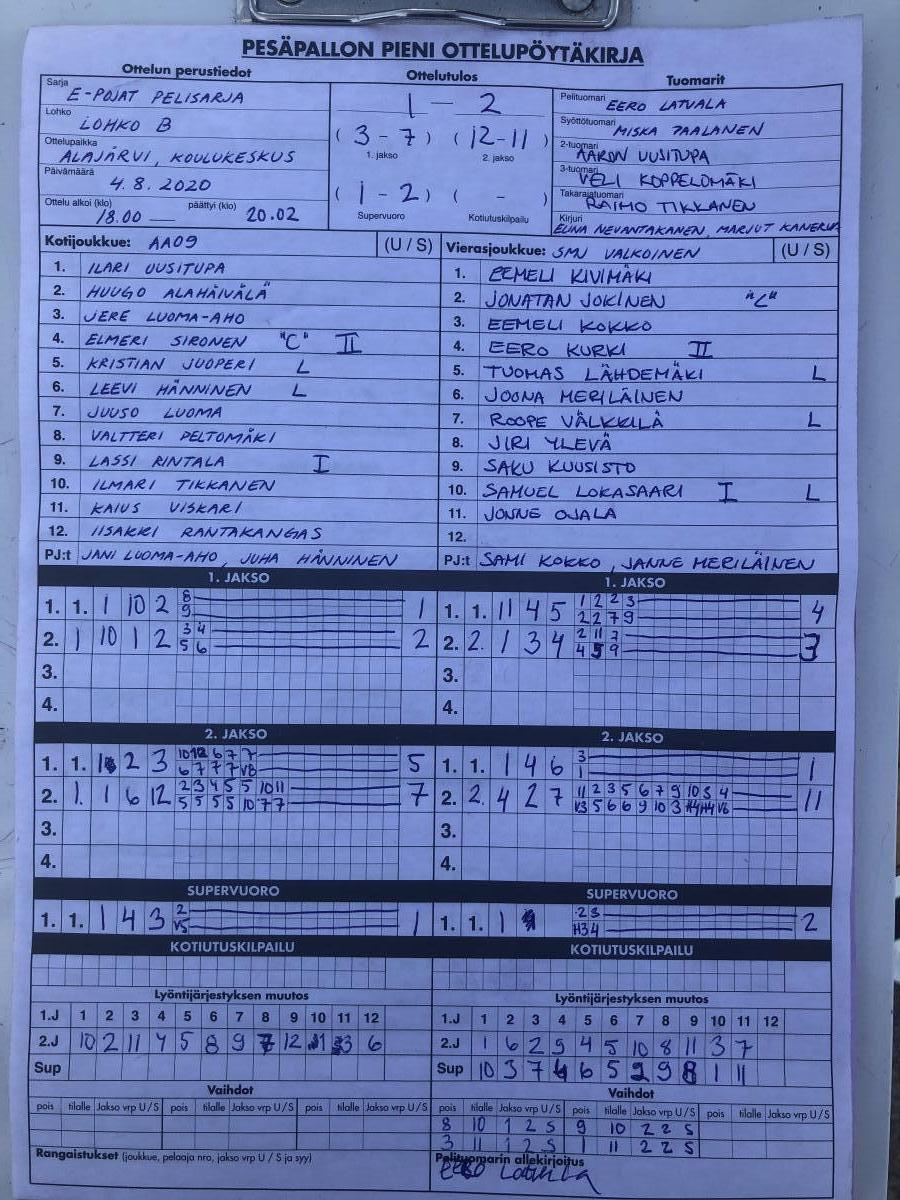 PESÄPALLON PIENI OTTELUPÖYTÄKIRJA
Ottelun perustiedot Ottelutulos Tuomarit
Sarja E-POJAT PELISARJA
Lohko LOHKO B
Ottelupaikka ALAJÄRVI, KOULUKESKUS
Päivämäärä 4.8.2020
Ottelu alkoi (klo) 18.00 päättyi (klo) 20.02
1 - 2
(3 - 7) (12-11)
1. jakso 2. jakso
(1 - 2) ( - )
Supervuoro Kotiutuskilpailu
Pelituomari EERO LATVALA
Syöttötuomari MISKA PAALANEN
2-tuomari AARON UUSITUPA
3-tuomari VELI KOPPELOMÄKI
Takarajatuomari RAIMO TIKKANEN
Kirjuri ELINA NEVANTAKANEN, MARJUT KANERVA
Kotijoukkue: AA09 (U / S)
1. ILARI UUSITUPA
2. HUUGO ALAHÄIVÄLÄ
3. JERE LUOMA-AHO
4. ELMERI SIRONEN "C" II
5. KRISTIAN JUOPERI L
6. LEEVI HÄNNINEN L
7. JUUSO LUOMA
8. VALTTERI PELTOMÄKI
9. LASSI RINTALA I
10. ILMARI TIKKANEN
11. KAIUS VISKARI
12. IISAKKI RANTAKANGAS
PJ:t JANI LUOMA-AHO, JUHA HÄNNINEN
Vierasjoukkue: SMJ VALKOINEN (U / S)
1. EEMELI KIVIMÄKI
2. JONATAN JOKINEN "C"
3. EEMELI KOKKO
4. EERO KURKI II
5. TUOMAS LÄHDEMÄKI L
6. JOONA MERILÄINEN
7. ROOPE VÄLKKILÄ L
8. JIRI YLEVÄ
9. SAKU KUUSISTO
10. SAMUEL LOKASAARI I L
11. JONNE OJALA
12.
PJ:t SAMI KOKKO, JANNE MERILÄINEN
1. JAKSO
1. 1. 1 10 2 8 9 1
2. 1 10 1 2 3 4 5 6 2
3.
4.
1. JAKSO
1. 1. 11 4 5 1 2 2 3 2 2 7 9 4
2. 2. 1 3 4 2 11 7 4 5 9 3
3.
4.
2. JAKSO
1. 1. 2 3 6 7 7 6 7 7 7 V8 5
2. 1. 1 6 12 2 3 4 5 5 10 11 5 5 5 5 10 7 7 7
3.
4.
2. JAKSO
1. 1. 1 4 6 3 1 1
2. 2. 4 2 7 11 2 3 5 6 7 9 10 3 4 V3 5 6 6 9 10 3 H4 H4 V6 11
3.
4.
SUPERVUORO
1. 1. 1 4 3 2 V5 1
SUPERVUORO
1. 1. 1 2 3 H3 4 2
KOTIUTUSKILPAILU
KOTIUTUSKILPAILU
Lyöntijärjestyksen muutos
1.J 1 2 3 4 5 6 7 8 9 10 11 12
2.J 10 2 11 4 5 8 9 7 12 1 3 6
Sup
Lyöntijärjestyksen muutos
1.J 1 2 3 4 5 6 7 8 9 10 11 12
2.J 1 6 2 9 4 5 10 8 11 3 7
Sup 10 3 7 4 6 5 2 9 8 1 11
Vaihdot
pois tilalle Jakso vrp U / S pois tilalle Jakso vrp U / S pois tilalle Jakso vrp U / S
Vaihdot
pois tilalle Jakso vrp U / S pois tilalle Jakso vrp U / S pois tilalle Jakso vrp U / S
8 10 1 2 S 9 10 2 2 S
3 11 1 2 S 1 11 2 2 S
Rangaistukset (joukkue, pelaaja nro, jakso vrp U / S ja syy)
Pelituomarin allekirjoitus
Eero Latvala